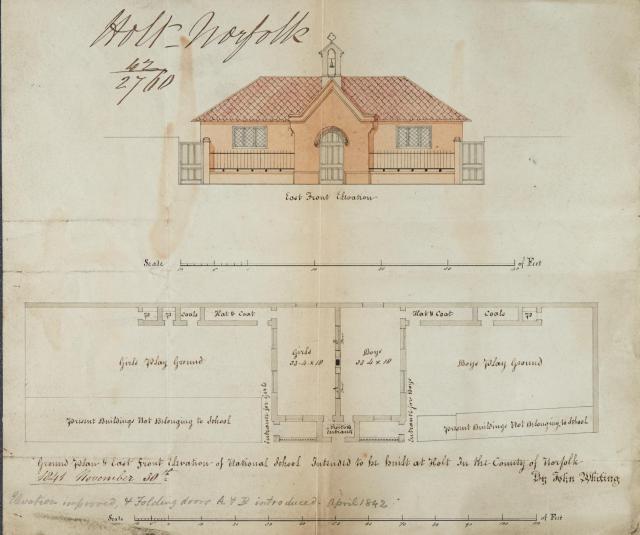 Holt - Norfolk
42
2760
East Front Elevation
Scale
of Feet
P P Coals Hat & Coat
Hat & Coat Coals P
Girls Play Ground
Girls
33-4 x 18
Boys
33-4 x 18
Boys Play Ground
Entrance for Girls
Entrance for Boys
Present Buildings Not Belonging to School
Entrance
Present Buildings Not Belonging to School
Ground Plan & East Front Elevation of National School Intended to be built at Holt In the County of Norfolk
1841 November 30th
By John Whiting
Elevation improved, & Folding doors A & B introduced. April 1842
Scale
of Feet